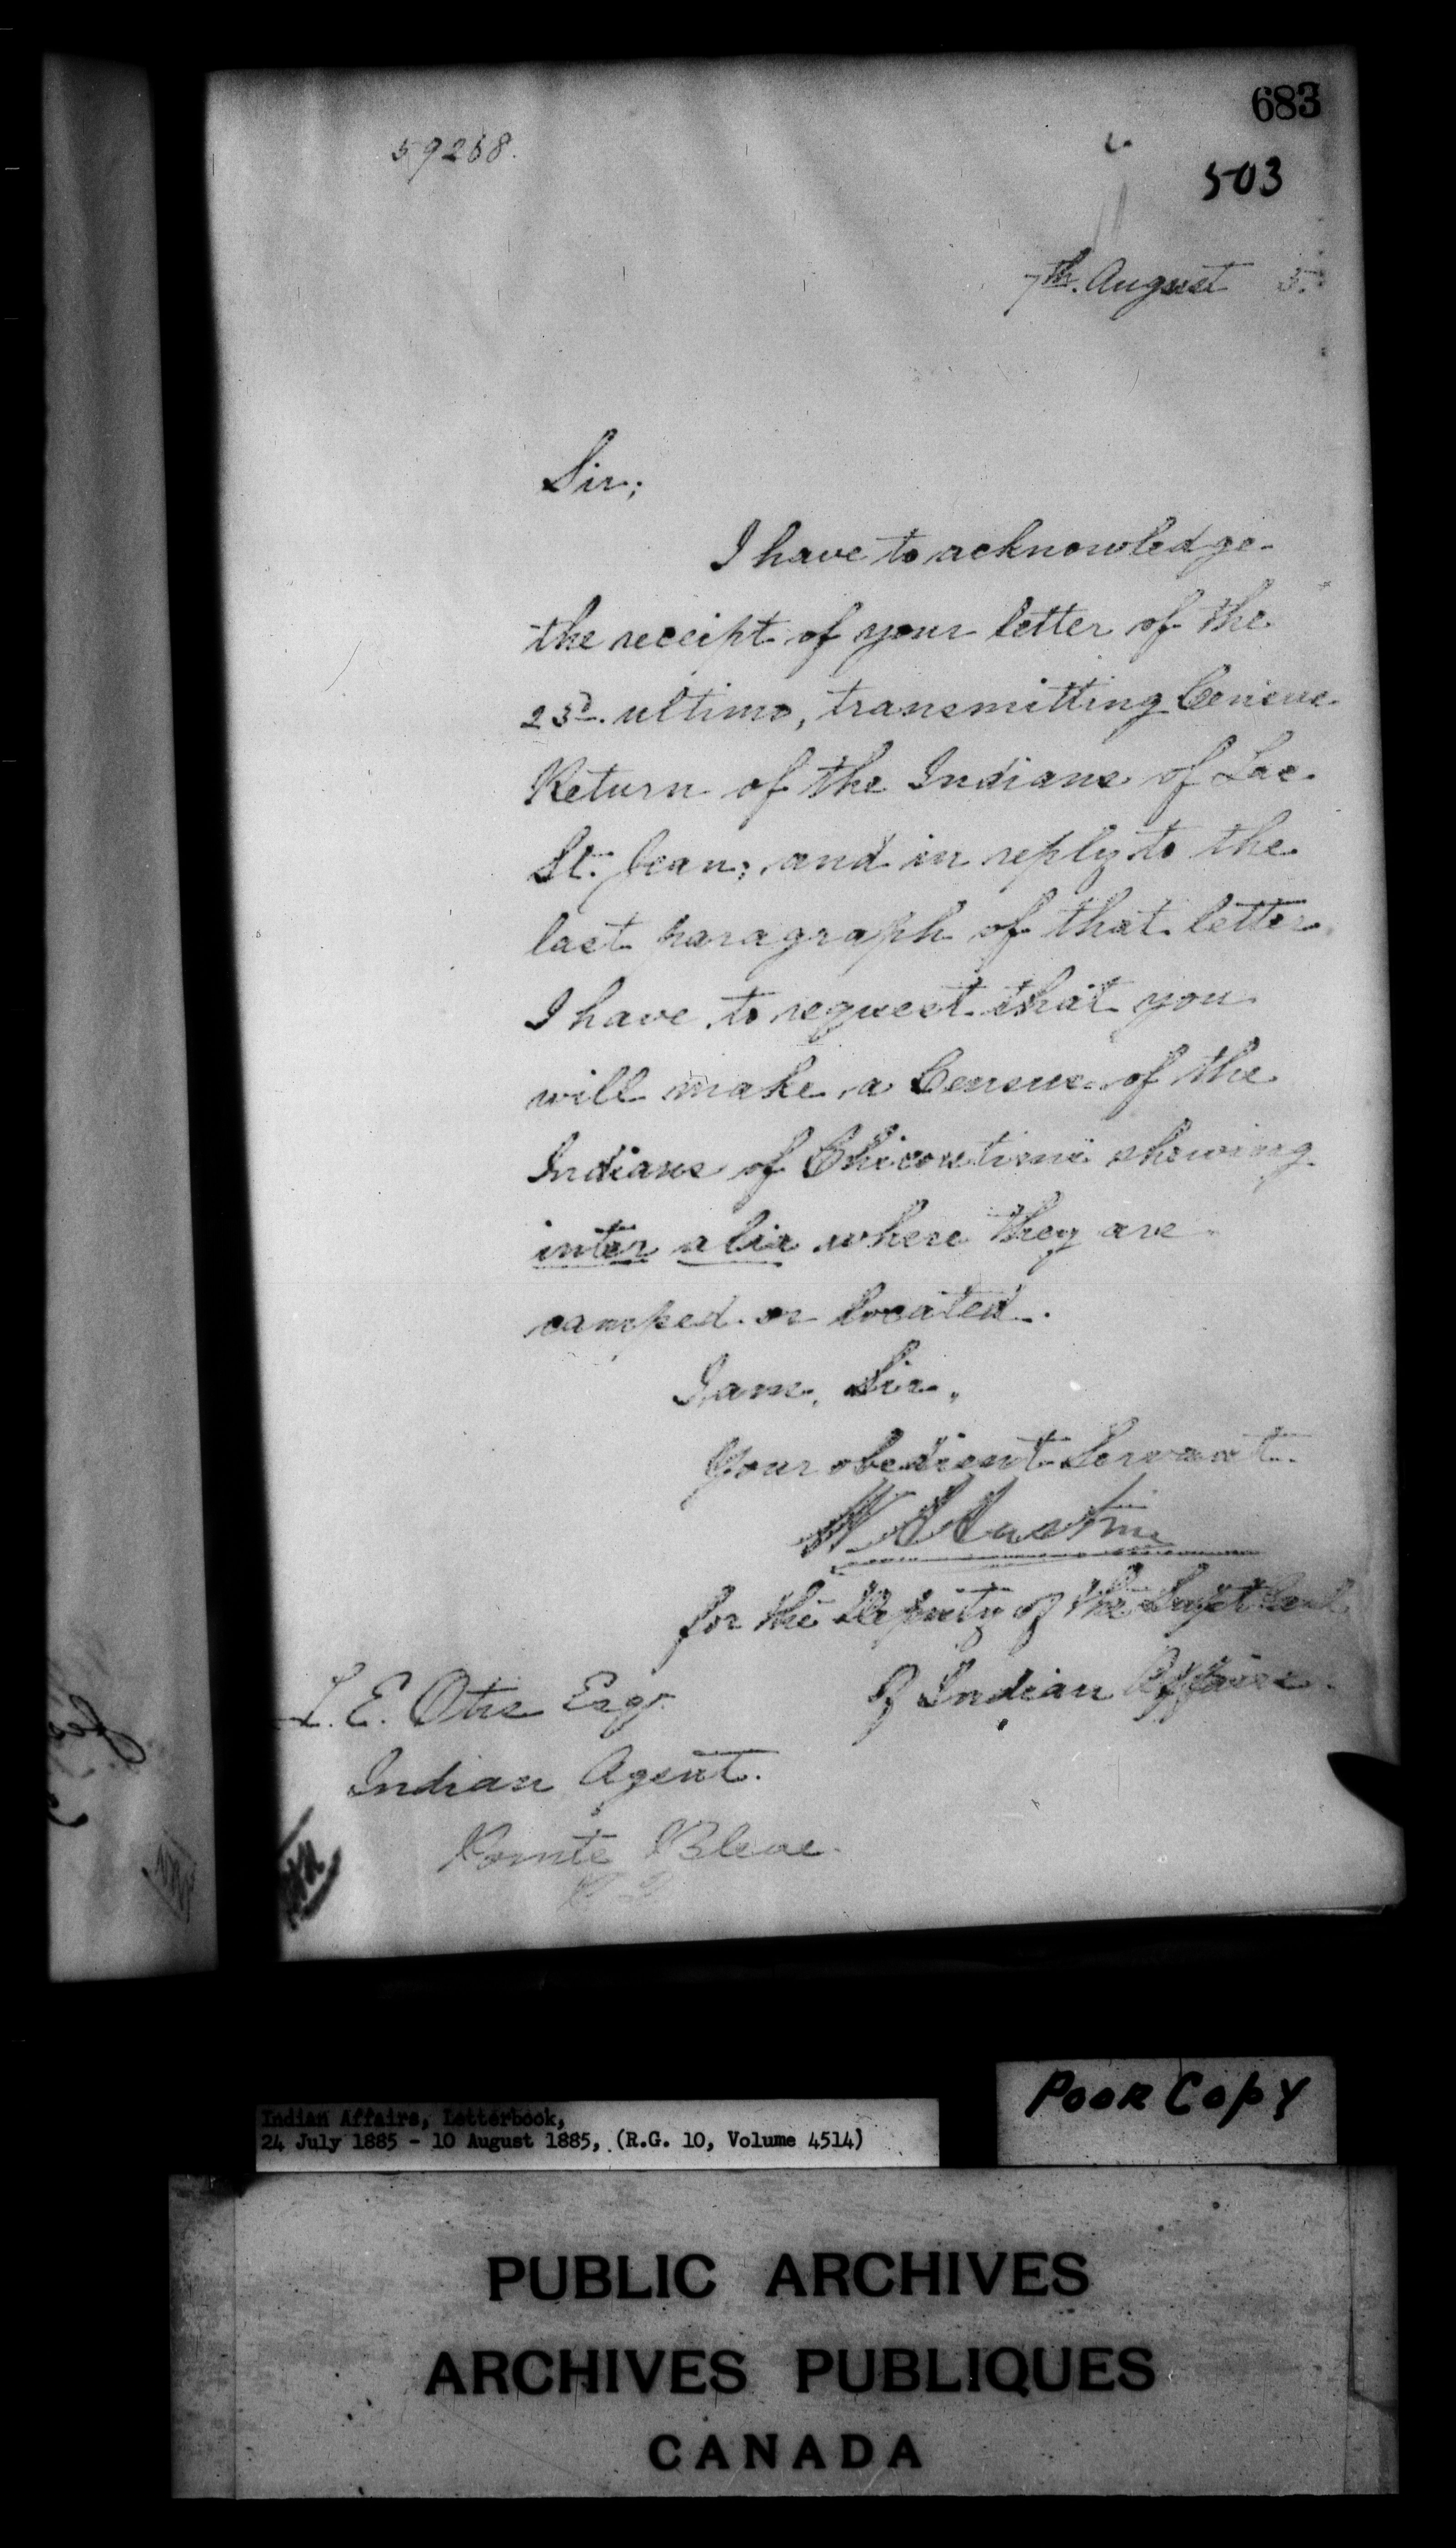 683
59268.
503
7th. August 5.
Sir;
I have to acknowledge
the receipt of your letter of the
23d. ultimo, transmitting Census
Return of the Indians of Lac
St. Jean; and in reply to the
last paragraph of that letter
I have to request that you
will make a Census of the
Indians of Chicoutimi shewing
inter alia where they are
camped or located.
I am, Sir,
Your obedient Servant.
for the Deputy of the Supt Genl
of Indian Affairs.
L. E. Otis Esqr.
Indian Agent.
Pointe Bleue.
Indian Affairs, Letterbook,
24 July 1885 - 10 August 1885, (R.G. 10, Volume 4514)
Poor Copy
PUBLIC ARCHIVES
ARCHIVES PUBLIQUES
CANADA